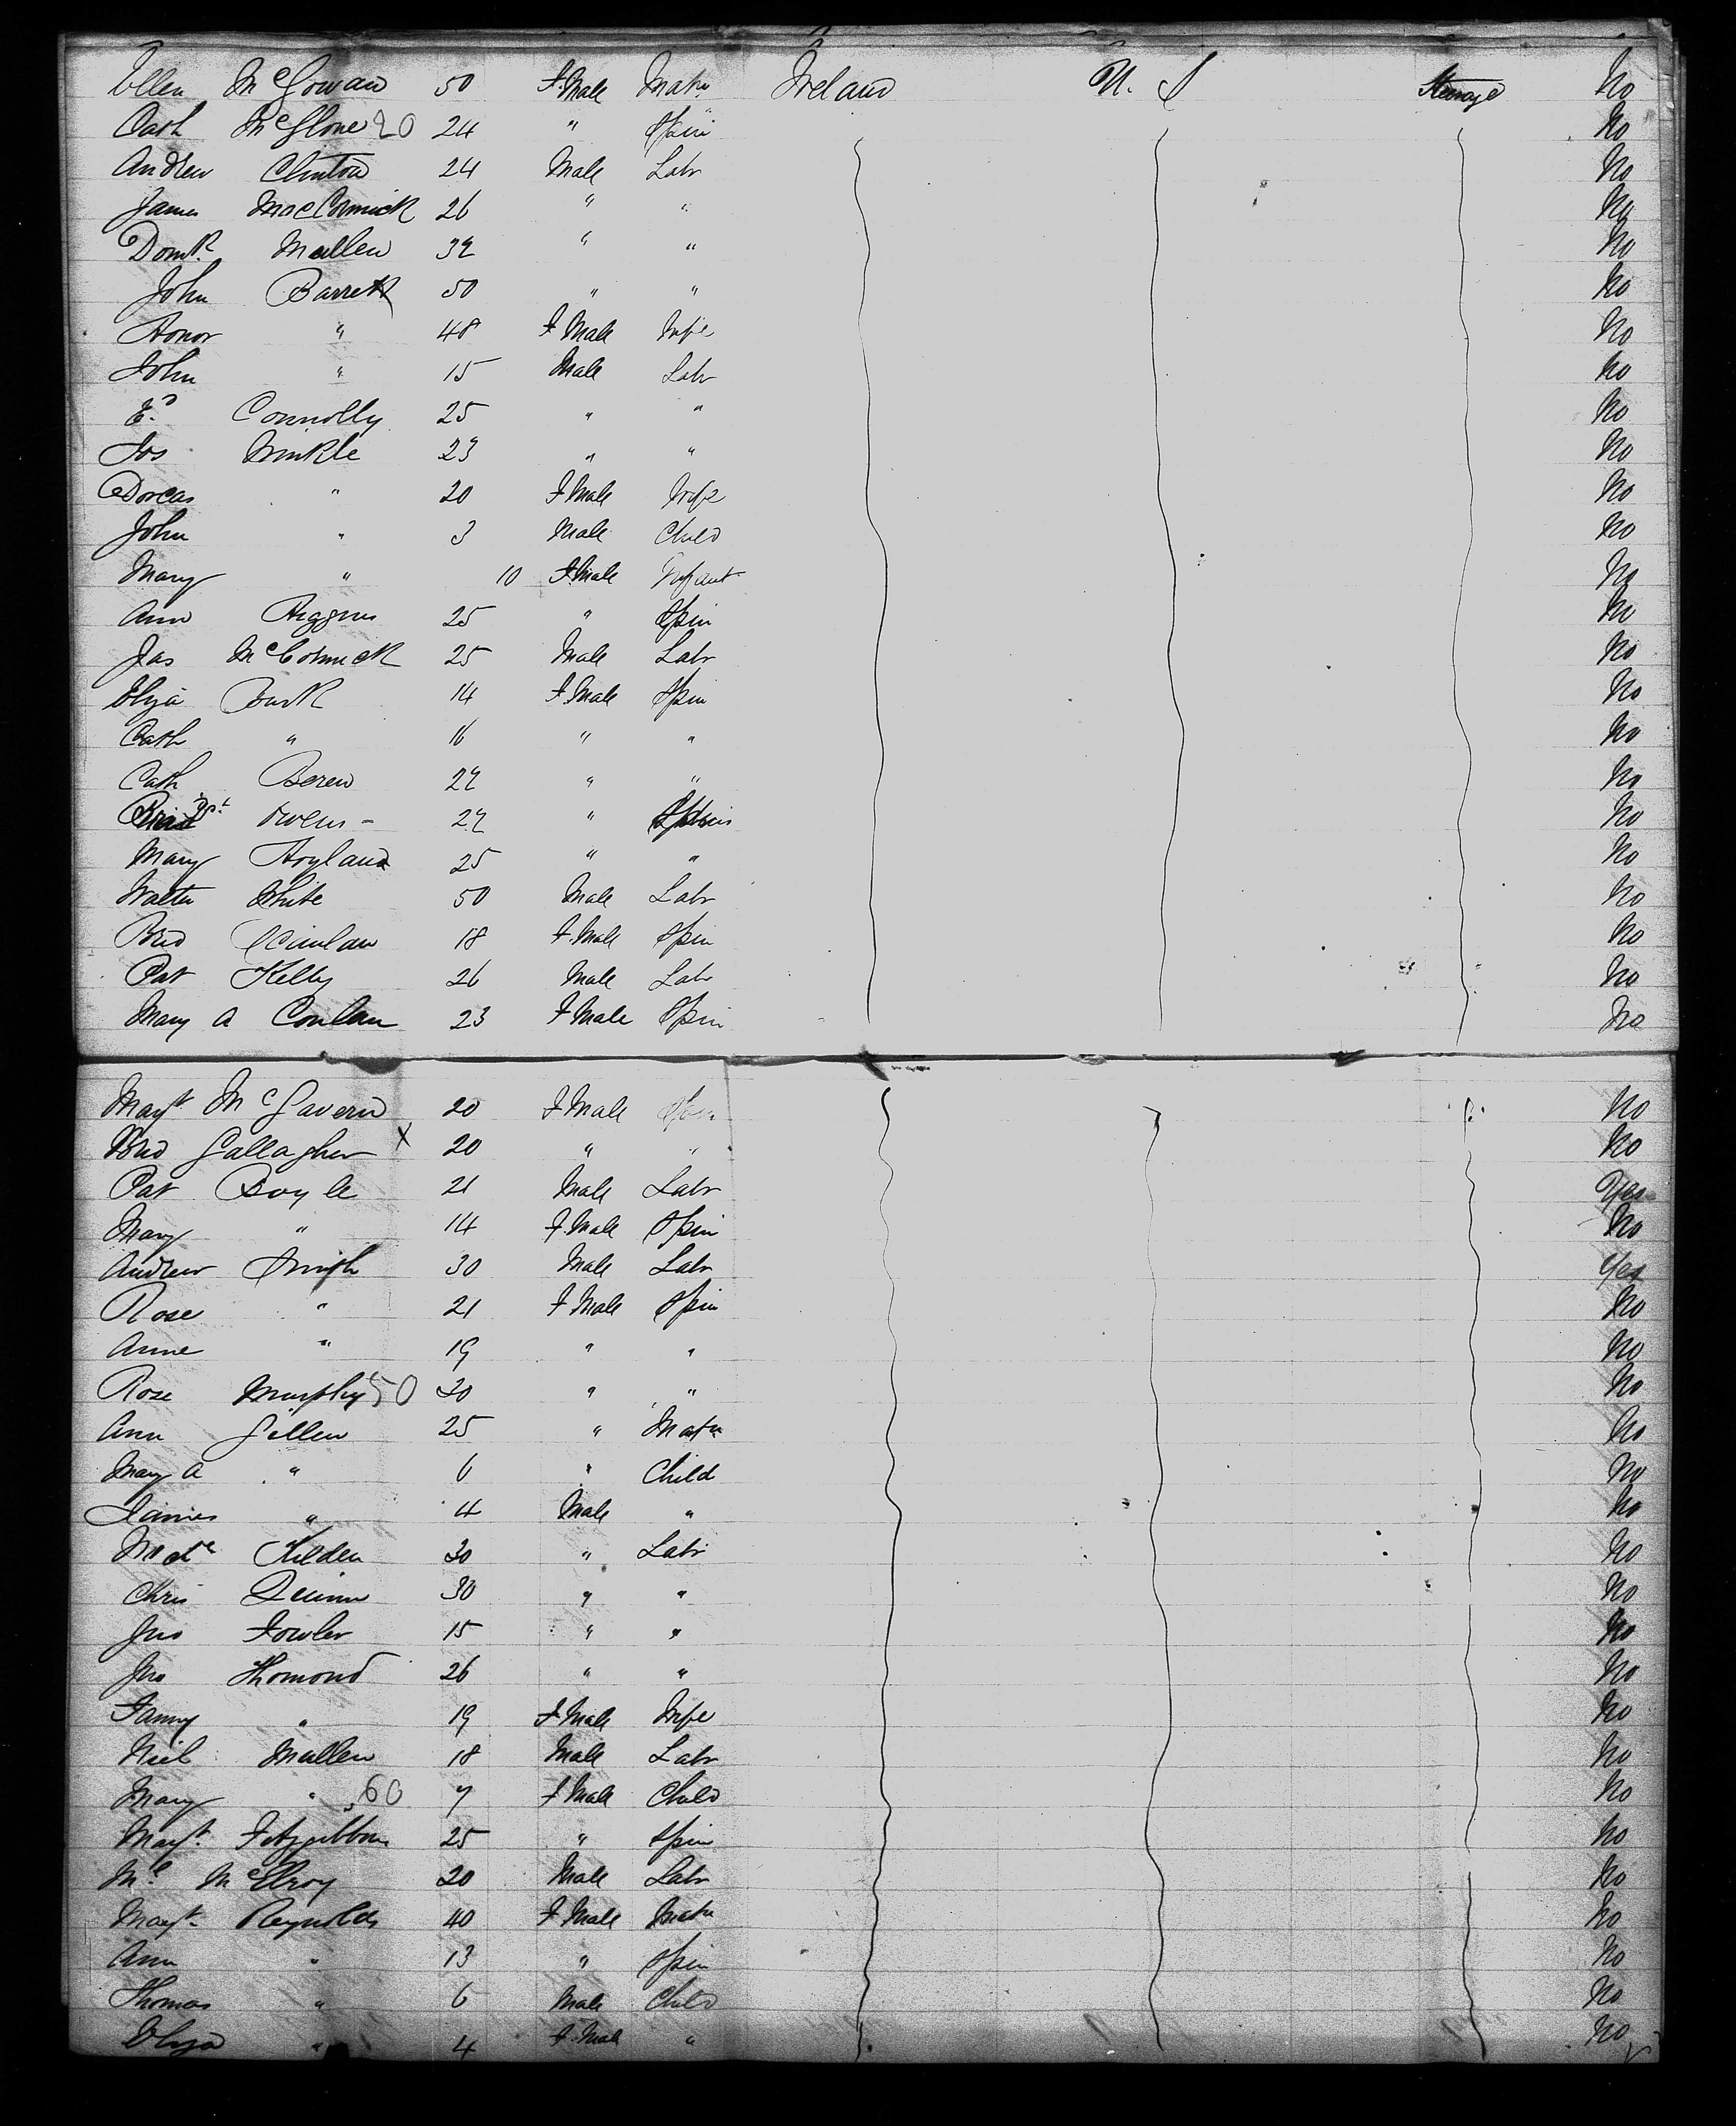 Ellen McGowan 50 F.Male Matn Ireland U. S Steerage No
Cath McGlone 20 24 " Spin No
Andrew Clinton 24 Male Labr No
James MacCormick 26 " " No
Domk. Mullen 32 " " No
John Barrett 50 " " No
Honor " 48 F Male Wife No
John " 15 Male Labr No
Ed Connolly 25 " " No
Jos 23 " " No
Dorcas " 20 F Male Wife No
John " 3 Male Child No
Mary " 10 F.Male Infant No
Ann Higgins 25 " Spin No
Jas McCormick 25 Male Labr No
Eliza Burk 14 F.Male Spin No
Cath " 16 " " No
Cath 22 " " No
Owens - 22 " Spin No
Mary Hoyland 25 " " No
Walter White 50 Male Labr No
Brid 18 F.Male Spin No
Pat Kelly 26 Male Labr No
Mary A Conlan 23 F Male Spin No
Magt McGavern 20 F Male Spin No
Brid Gallagher x 20 " " No
Pat Boyle 21 Male Labr Yes
Mary " 14 F.Male Spin No
Andrew Smith 30 Male Labr Yes
Rose " 21 F Male Spin No
Anne " 19 " " No
Rose Murphy 50 30 " " No
Ann Gillen 25 " Matn No
Mary A " 6 " Child No
James " 4 Male " No
Kilden 30 " Labr No
Chris Quinn 30 " " No
Jno Fowler 15 " " No
Jno Thomond 26 " " No
Fanny " 19 F Male Wife No
Niel Mullen 18 Male Labr No
Mary " 60 7 F Male Child No
Magt. Fitzgibbon 25 " Spin No
Ml. McElroy 20 Male Labr No
Magt. Reynolds 40 F Male Matn No
Ann " 13 " Spin No
Thomas " 6 Male Child No
Eliza " 4 F.Male " No